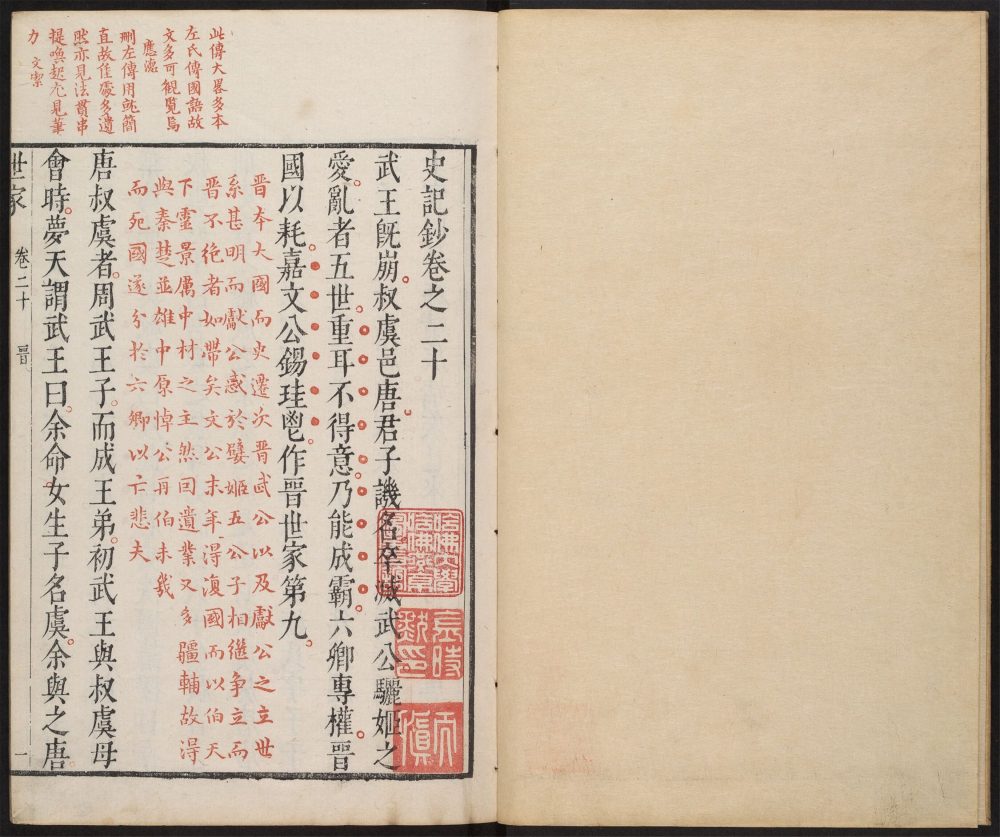 此傳大畧多本
左氏傳國語故
文多可觀覽焉
應澨
刪左傳用能簡
直故佳處多遺
然亦見法貫串
提喚起尤見筆
力 文潔
史記鈔卷之二十
武王旣崩叔虞邑唐君子譏名卒滅武公驪姬之
愛亂者五世重耳不得意乃能成霸六卿專權晉
國以耗嘉文公錫珪鬯作晉世家第九
晉本大國而史遷次晉武公以及獻公之立世
系甚明而獻公惑於嬖姬五公子相繼争立而
晉不絶者如帶矣文公末年淂復國而以伯天
下靈景厲中材之主然因遺業又多疆輔故淂
與秦楚並雄中原悼公再伯未幾
而死國遂分於六卿以亡悲夫
唐叔虞者周武王子而成王弟初武王與叔虞母
會時夢天謂武王曰余命女生子名虞余與之唐
世家 卷二十 晉 一